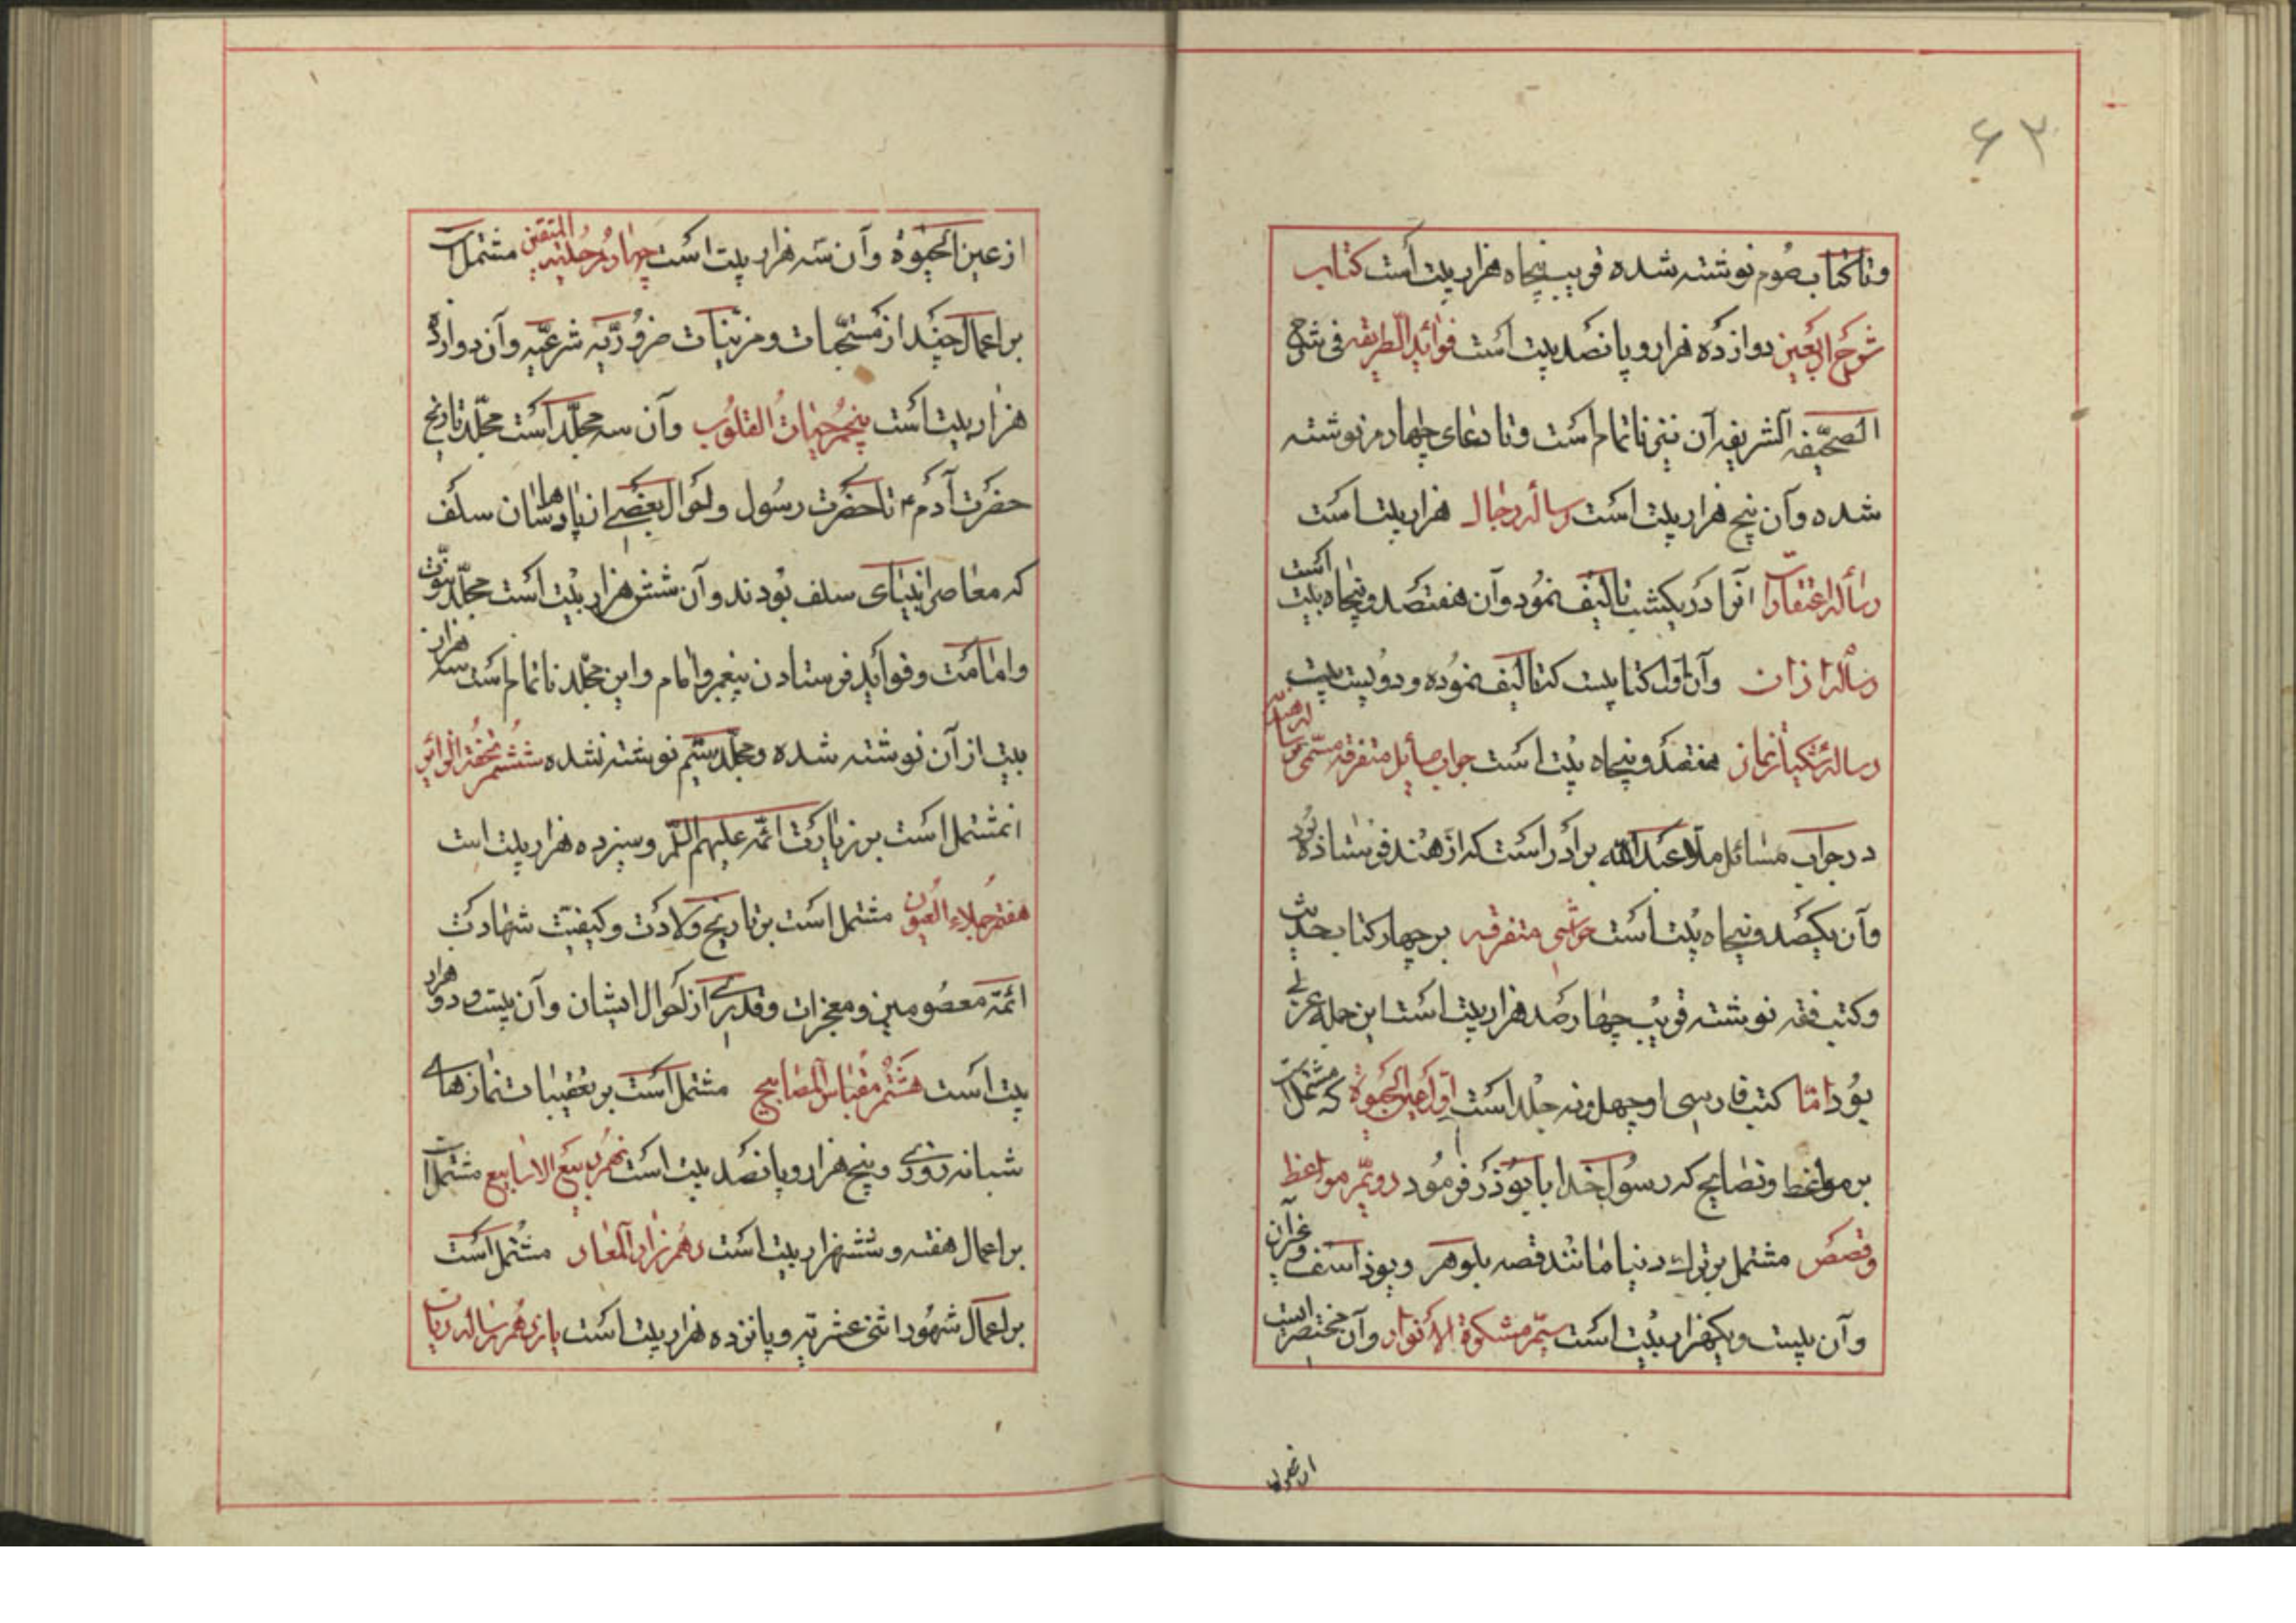 ۶۳
وتا کتاب صوم نوشته شده قریب پنجاه هزار بیت است کتاب
شرح اربعین دوازده هزار و پانصد بیت است فوائد الطریقه فی شرح
الصحیفه الشریفه آن نیز ناتمام است و تا دعای چهارم نوشته
شده و آن پنج هزار بیت است رساله رجال هزار بیت است
رساله اعتقادات آنرا در یکشب تالیف نمود و آن هفتصد و پنجاه بیت است
رساله اذان وآن اول کتابیست که تالیف نموده و دویست بیت
رساله شکیات نماز هفتصد و پنجاه بیت است جواب مسایل متفرقه مسمی
در جواب مسائل ملا عبدالله برادر است که از هند فرستاده بود
وآن یکصد و پنجاه بیت است حواشی متفرقه بر چهار کتاب حدیث
وکتب فقه نوشته قریب چهار صد هزار بیت است این جمله عربی
بود اما کتب فارسی او چهل و نه جلد است اول عین الحیوة که مشتمل است
بر مواعظ و نصایح که رسول خدا بابوذر فرمود دویّم مواعظ
وقصص مشتمل بر ترک دنیا مانند قصه بلوهر و یوذاسف و غیر آن
وآن بیست و یکهزار بیت است سیّم مشکوة الانوار وآن مختصر است
از عین الحیوة وآن سه هزار بیت است چهارم حلیة المتقین مشتمل است
بر اعمال چند از مستحبات و مزینات ضروریّه شرعیّه وآن دوازده
هزار بیت است پنجم حیات القلوب وآن سه مجلّد است مجلّد تاریخ
حضرت آدم ع تا حضرت رسول و احوال بعضی از پادشاهان سلف
که معاصر انبیای سلف بودند و آن شش هزار بیت است مجلّد نبوّت
وامامت و فواید فرستادن پیغمبر و امام و این مجلّد ناتمام است سه هزار
بیت از آن نوشته شده و مجلّد سیّم نوشته نشده ششم تحفة الزائر
انمشتمل است بر زیارت ائمّه علیهم السّلم و سیزده هزار بیت است
هفتم جلاء العیون مشتمل است بر تاریخ ولادت و کیفیّت شهادت
ائمّه معصومین و معجزات و قدری از احوال ایشان وآن بیست و دو هزار
بیت است هشتم مقباس المصابیح مشتمل است بر تعقیبات نمازهای
شبانه روزی و پنج هزار و پانصد بیت است نهم ربیع الاسابیع مشتمل است
بر اعمال هفته و ششهزار بیت است دهم زاد المعاد مشتمل است
بر اعمال شهور اثنی عشریّه و پانزده هزار بیت است یازدهم رساله دیات
از عین الحیوة